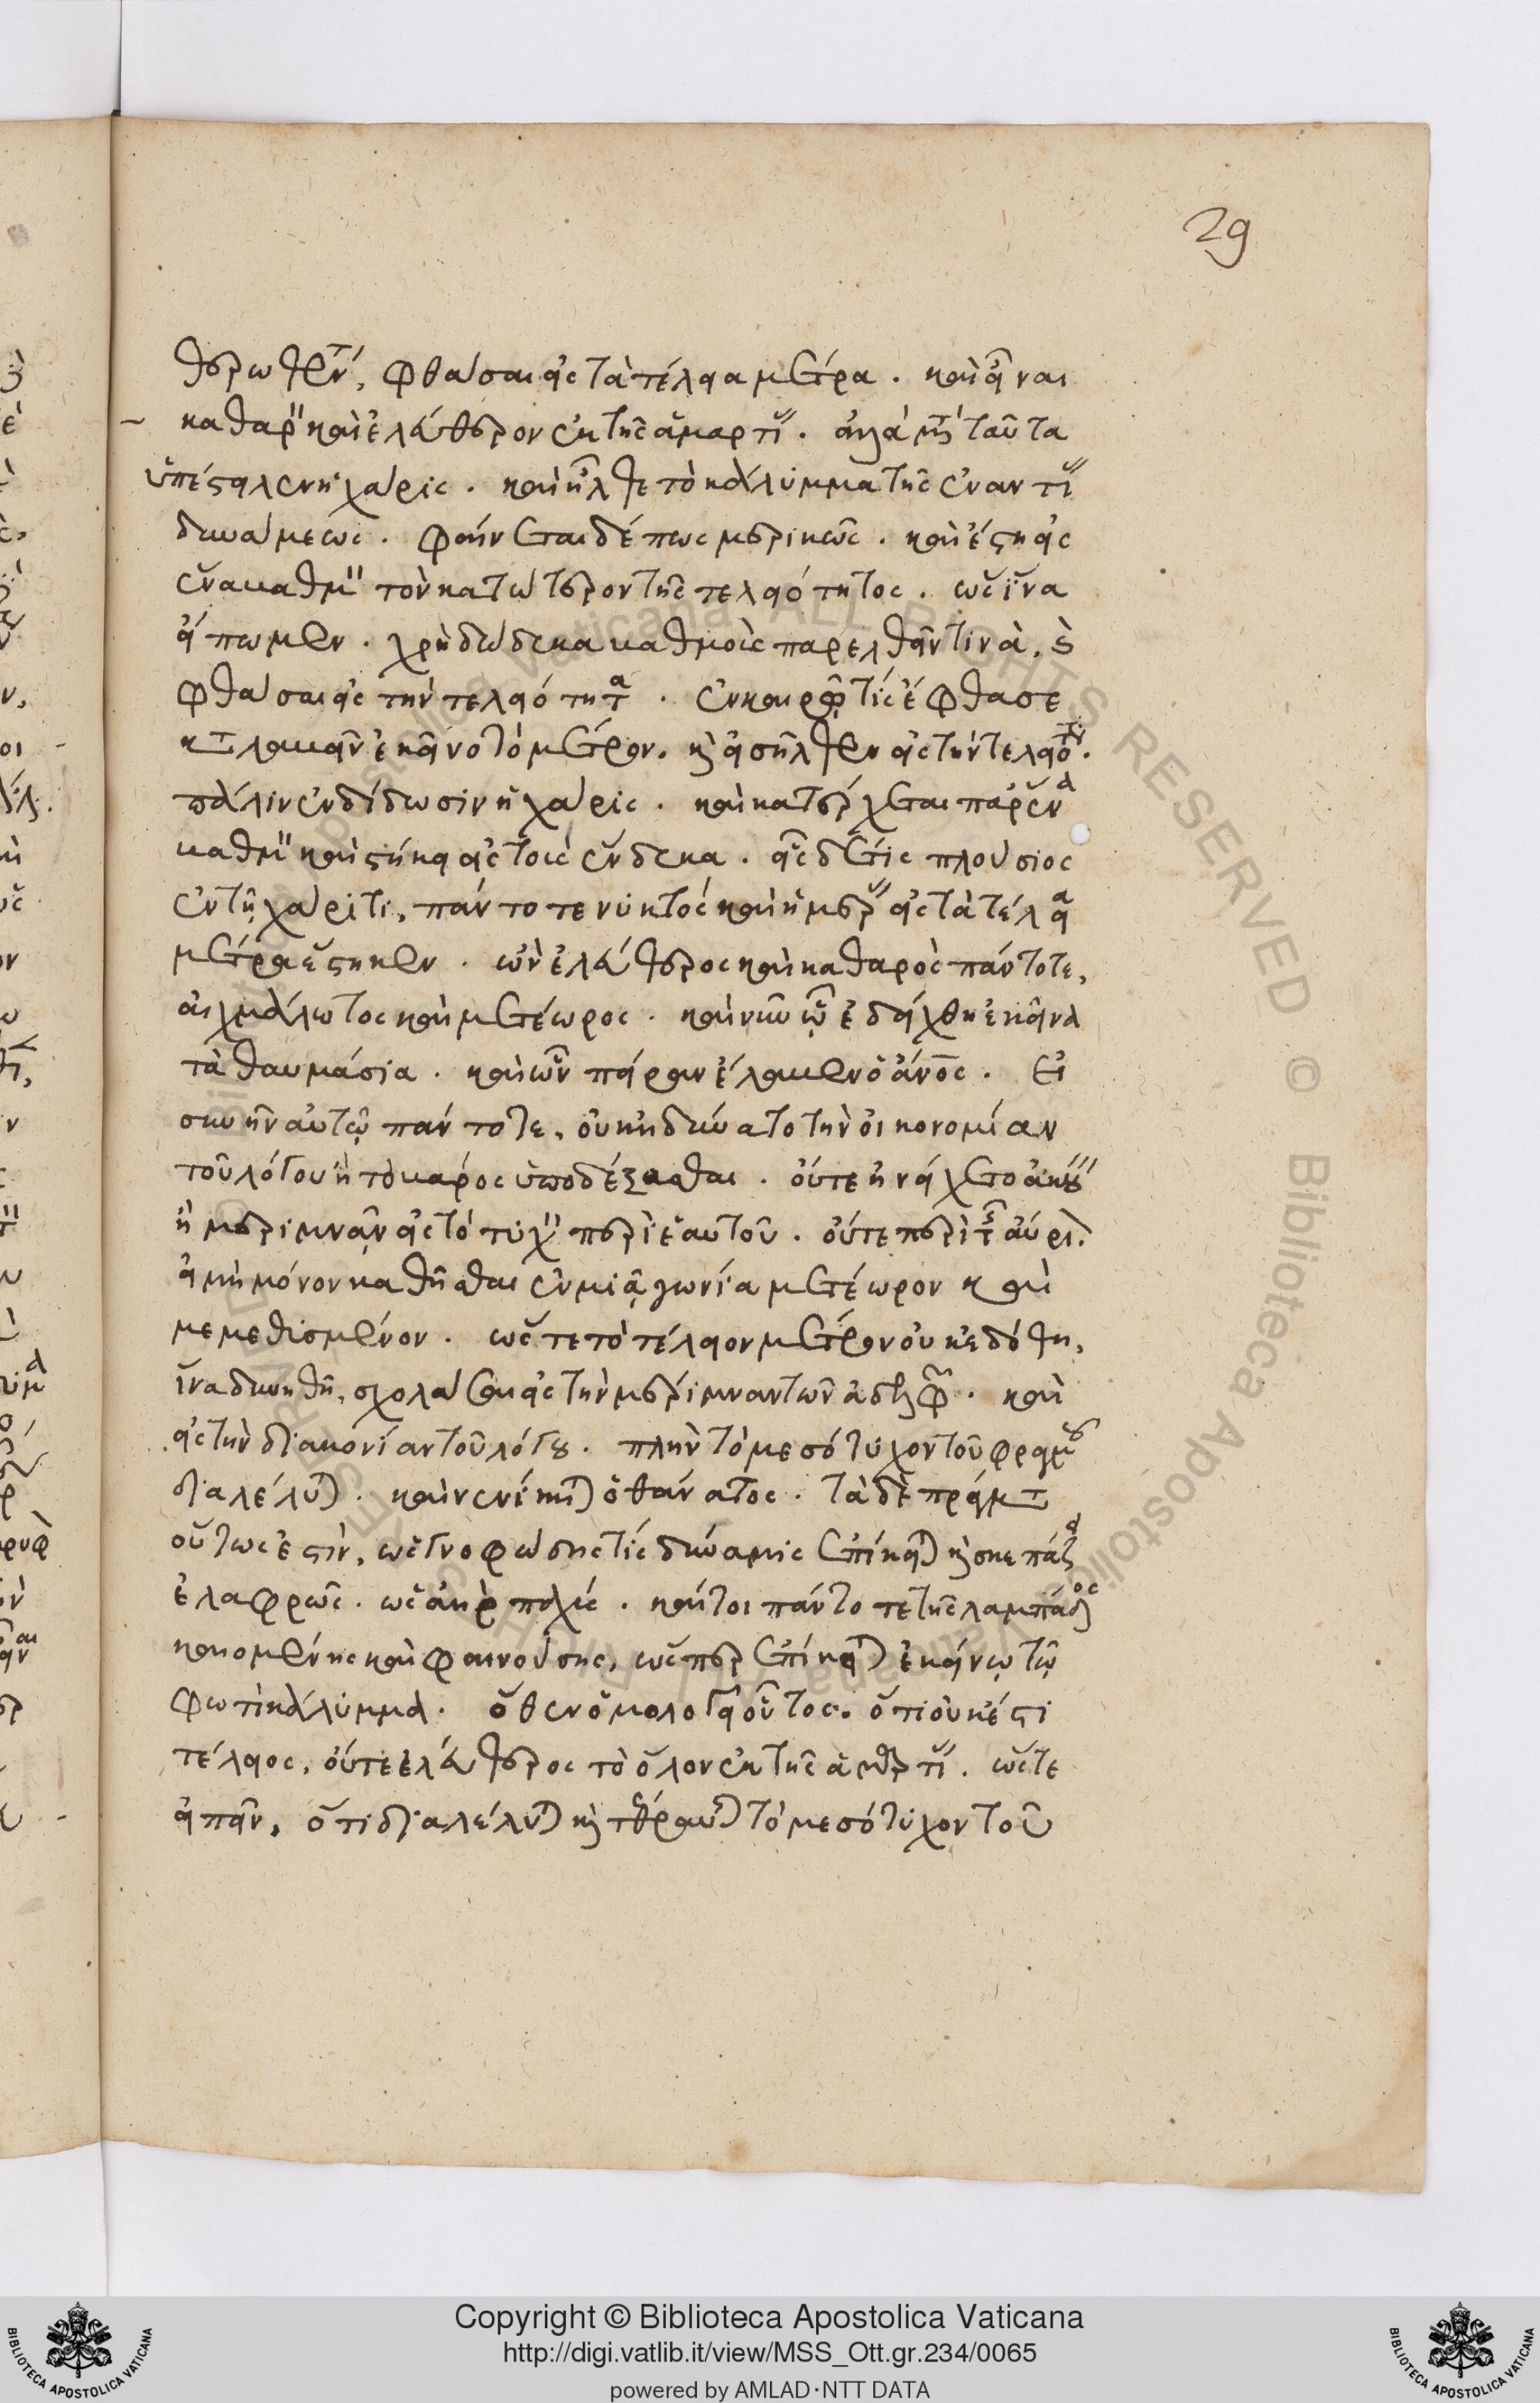 29
θερωθέντ, φθάσαι εἰς τὰ τέλεια μέτρα. καὶ εἶναι
καθαρ καὶ ἐλεύθερον ἐκ τῆς ἁμαρτι. ἀλλὰ μτ ταῦτα
ὑπέστειλεν ἡ χάρις. καὶ ἦλθε τὸ κάλυμμα τῆς ἐναντι
δυνάμεως. φαίνεται δέ πως μερικῶς. καὶ ἔστη εἰς
ἕνα βαθμ τὸν κατώτερον τῆς τελειότητος. ὡς ἵνα
εἴπωμεν. χρὴ δώδεκα βαθμοὺς παρελθεῖν τινὰ, κ
φθάσαι εἰς τὴν τελειότητα. ἐν καιρῷ τίς ἔφθασε
κτλαβεῖν ἐκεῖνο τὸ μέτρον. κ εἰσῆλθεν εἰς τὴν τελειότ.
πάλιν ἐνδίδωσιν ἡ χάρις. καὶ κατέρχεται παρ ἕνα
βαθμ καὶ στήκει εἰς τοὺς ἕνδεκα. εἷς δέ τις πλούσιος
ἐν τῇ χάριτι, πάντοτε νυκτὸς καὶ ἡμερ εἰς τὰ τέλεια
μέτρα ἕστηκεν. ὢν ἐλεύθερος καὶ καθαρὸς πάντοτε,
αἰχμάλωτος καὶ μετέωρος. καὶ νῦν ᾧ ἐδείχθη ἐκεῖνα
τὰ θαυμάσια. καὶ ὧν πεῖραν ἔλαβεν ὁ ἄνος. εἰ
συνῆν αὐτῷ πάντοτε, οὐκ ἠδύνατο τὴν οἰκονομίαν
τοῦ λόγου ἢ τὸ βάρος ὑποδέξασθαι. οὔτε ἠνείχετο ἀκού
ἢ μεριμνᾶν εἰς τὸ τυχ περὶ ἑαυτοῦ. οὔτε περὶ τῆς αὔρι.
εἰ μὴ μόνον καθῆσθαι ἐν μιᾷ γωνία μετέωρον καὶ
μεμεθυσμένον. ὥστε τὸ τέλειον μέτρον οὐκ ἐδόθη,
ἵνα δυνηθῇ, σχολάζειν εἰς τὴν μέριμναν τῶν ἀδελφ. καὶ
εἰς τὴν διακονίαν τοῦ λόγου. πλὴν τὸ μεσότυχον τοῦ φραγμοῦ
διαλέλυται. καὶ νενίκηται ὁ θάνατος. τὰ δὲ πράγμτ
οὕτως ἐστίν, ὡς γνοφώδης τίς δύναμις ἐπίκειται κ σκεπάζει
ἐλαφρῶς. ὡς ἀὴρ παχύς. καίτοι πάντοτε τῆς λαμπάδος
καιομένης καὶ φαινούσης, ὥσπερ ἐπίκειται ἐκείνῳ τῷ
φωτὶ κάλυμμα. ὅθεν ὁμολογεῖ οὗτος. ὅτι οὐκ ἔστι
τέλειος, οὔτε ἐλεύθερος τὸ ὅλον ἐκ τῆς ἁμαρτι. ὥστε
εἰπεῖν, ὅτι διαλέλυται κ τέθραυται τὸ μεσότυχον τοῦ
Copyright © Biblioteca Apostolica Vaticana
http://digi.vatlib.it/view/MSS_Ott.gr.234/0065
powered by AMLAD·NTT DATA